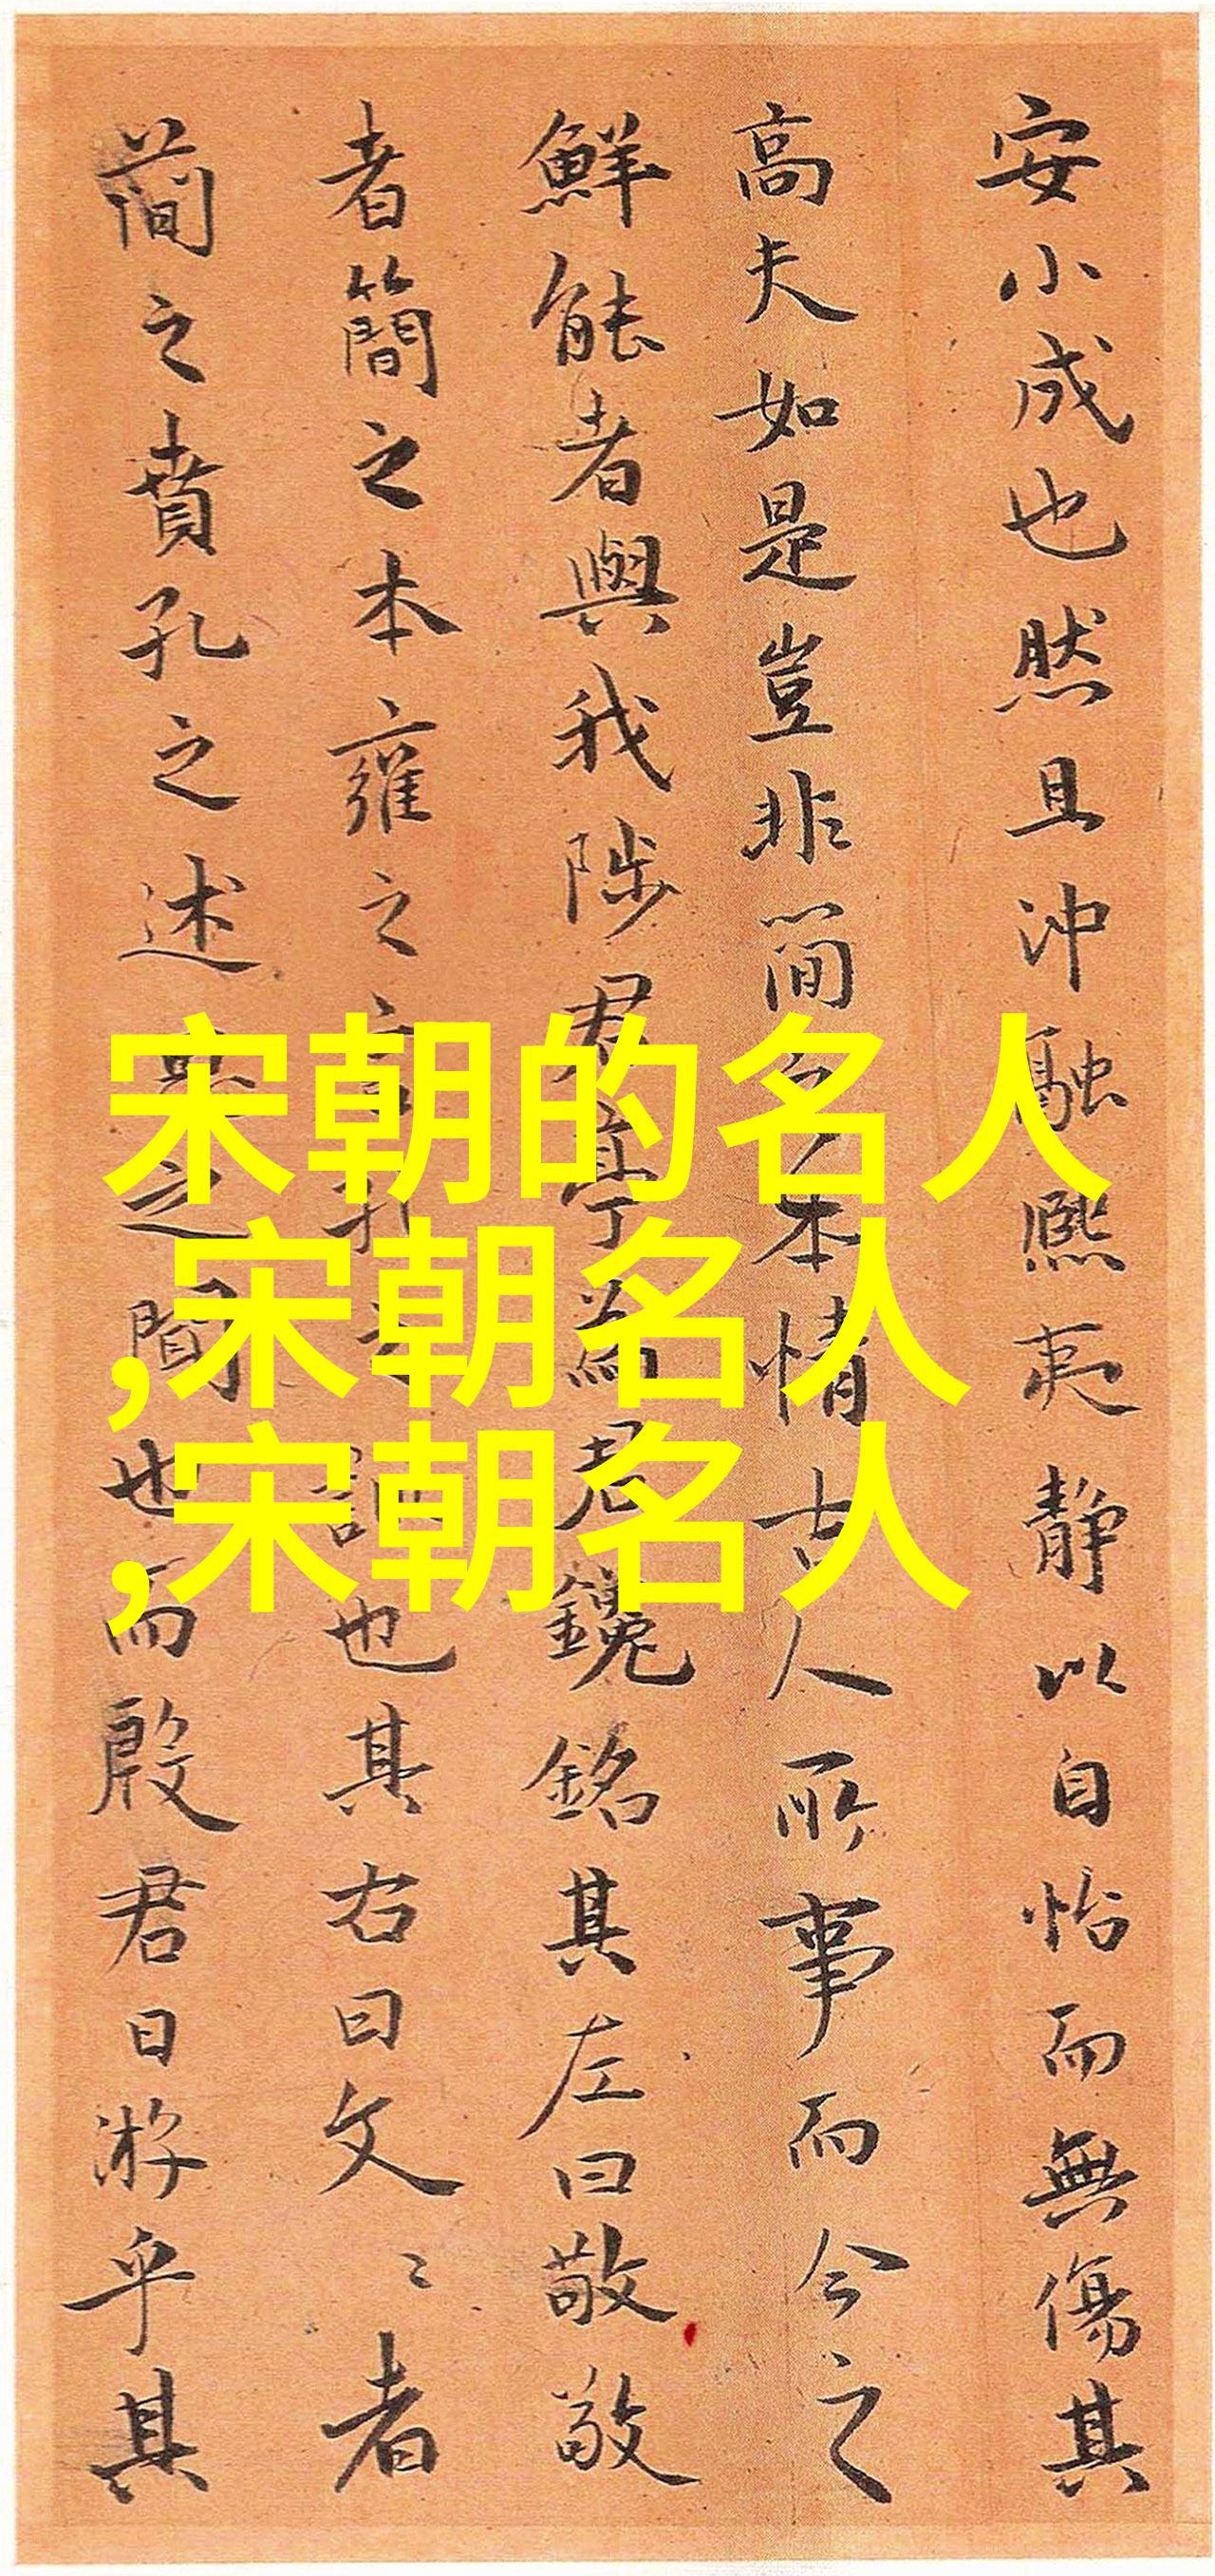 安小成也然且沖融熙夷静以自怡而無傷其
高夫如是豈非簡之本情古人所事而今之
鮮能者與我陟君亭為君鑱銘其左曰敬敬
者簡之本雍之言孔之訓也其右曰文〻者
簡之賁孔之述其之間也而殷君日游乎其
宋朝的名人
,宋朝名人
,宋朝名人